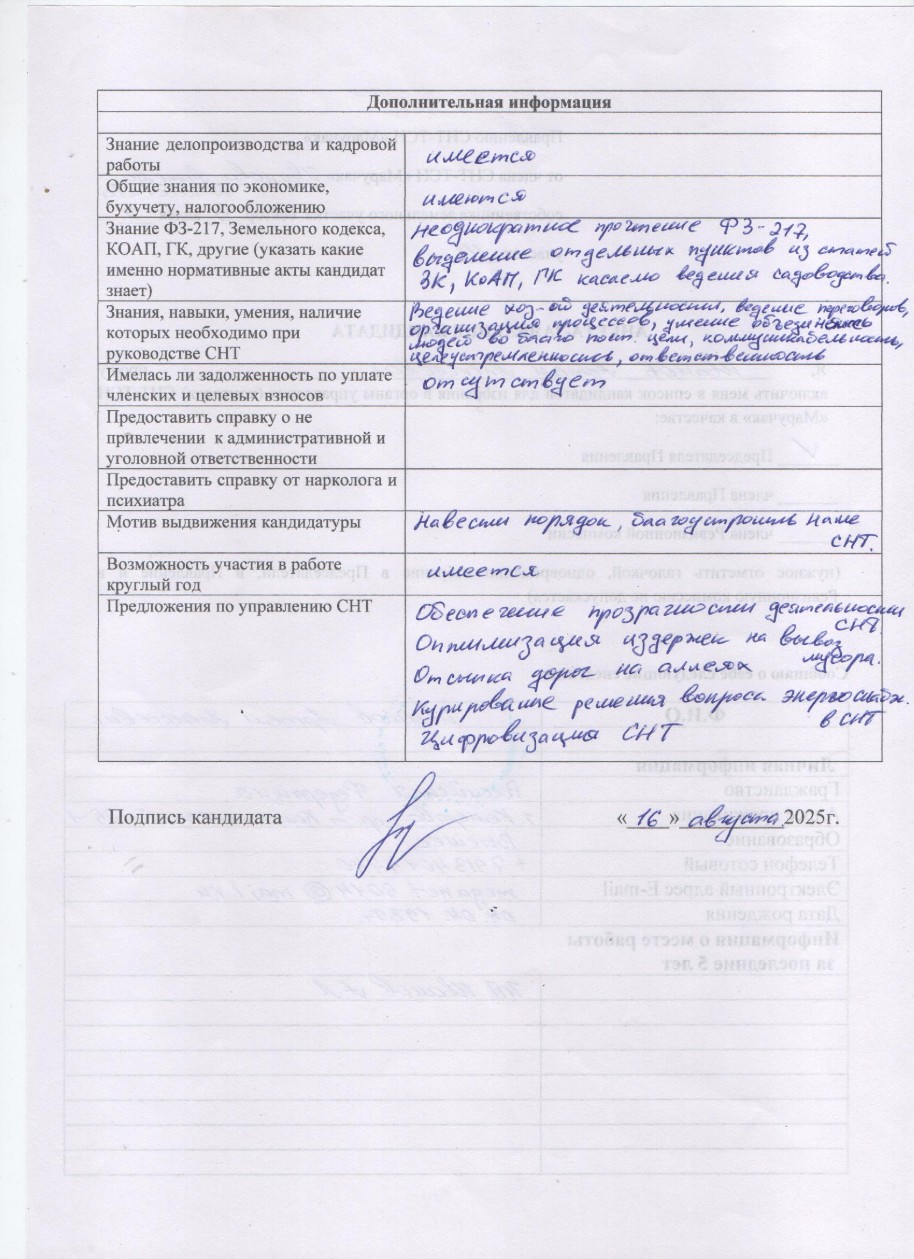 Дополнительная информация
Знание делопроизводства и кадровой
работы
имеется
Общие знания по экономике,
бухучету, налогообложению
имеются
Знание ФЗ-217, Земельного кодекса,
КОАП, ГК, другие (указать какие
именно нормативные акты кандидат
знает)
Неоднократное прочтение ФЗ-217,
выделение отдельных пунктов из статей
ЗК, КоАП, ГК касаемо ведения садоводства.
Знания, навыки, умения, наличие
которых необходимо при
руководстве СНТ
Ведение хоз-ой деятельности, ведение переговоров,
организация процессов, умение объединять
людей во благо пост. цели, коммуникабельность,
целеустремленность, ответственность
Имелась ли задолженность по уплате
членских и целевых взносов
отсутствует
Предоставить справку о не
привлечении к административной и
уголовной ответственности
Предоставить справку от нарколога и
психиатра
Мотив выдвижения кандидатуры
Навести порядок, благоустроить наше
СНТ.
Возможность участия в работе
круглый год
имеется
Предложения по управлению СНТ
Обеспечение прозрачности деятельности
СНТ.
Оптимизация издержек на вывоз
мусора.
Отсыпка дорог на аллеях
Курирование решения вопроса энергоснабж.
в СНТ
Цифровизация СНТ
Подпись кандидата
« 16 » августа 2025г.